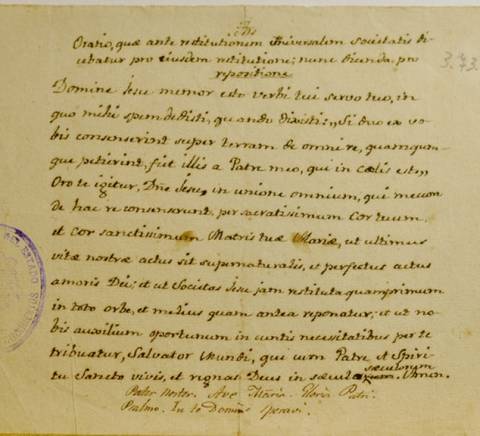 Oratio, quæ ante restitutionem universalem societatis di
cebatur pro eiusdem restitutione; nunc dicenda pro
repositione
3.73.
Domine Iesu memor esto verbi tui servo tuo, in
quo mihi spem dedisti, quando dixisti: Si duo ex vo-
bis consenserint super terram de omni re, quamqum-
que petierint, fiet illis a Patre meo, qui in cœlis est,
Oro te igitur, Dñe Iesu, in unione omnium, qui mecum
de hac re consenserunt, per sacratissimum Cor tuum,
et Cor sanctissimum Matris tuæ Mariæ, ut ultimus
vitæ nostræ actus sit supernaturalis, et perfectus actus
amoris Dei; et ut Societas Iesu jam restituta quamprimum
in toto orbe, et melius quam antea reponatur; et ut no-
bis auxilium oportunum in cuntis necesitatibus per te
tribuatur, Salvator Mundi, qui cum Patre et Spiri-
tu Sancto vivis, et regnas Deus in sæcula sæculorum Amen.
Pater Noster. Ave Maria. Gloria Patri.
Psalmo. In te Domine speravi.
ESTADO